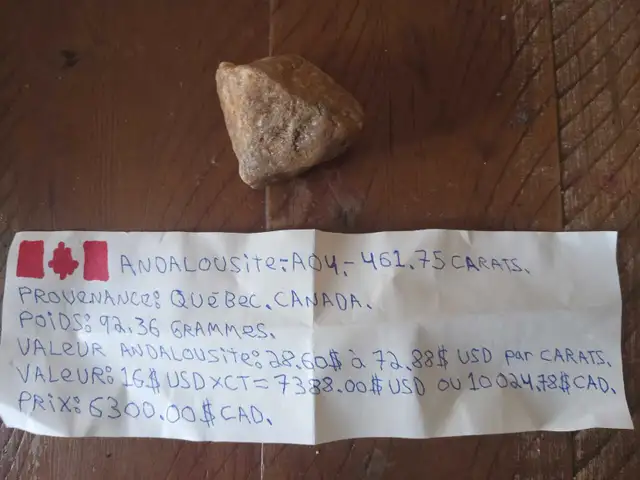 ANDALOUSITE:-A04.- 461.75 CARATS.
PROVENANCE: QUÉBEC. CANADA.
POIDS: 92.36 GRAMMES.
VALEUR ANDALOUSITE: 28.60$ à 72.88$ USD par CARATS.
VALEUR: 16$ USD X CT = 7388.00$ USD OU 10 024.78$ CAD.
PRIX: 6300.00$ CAD.